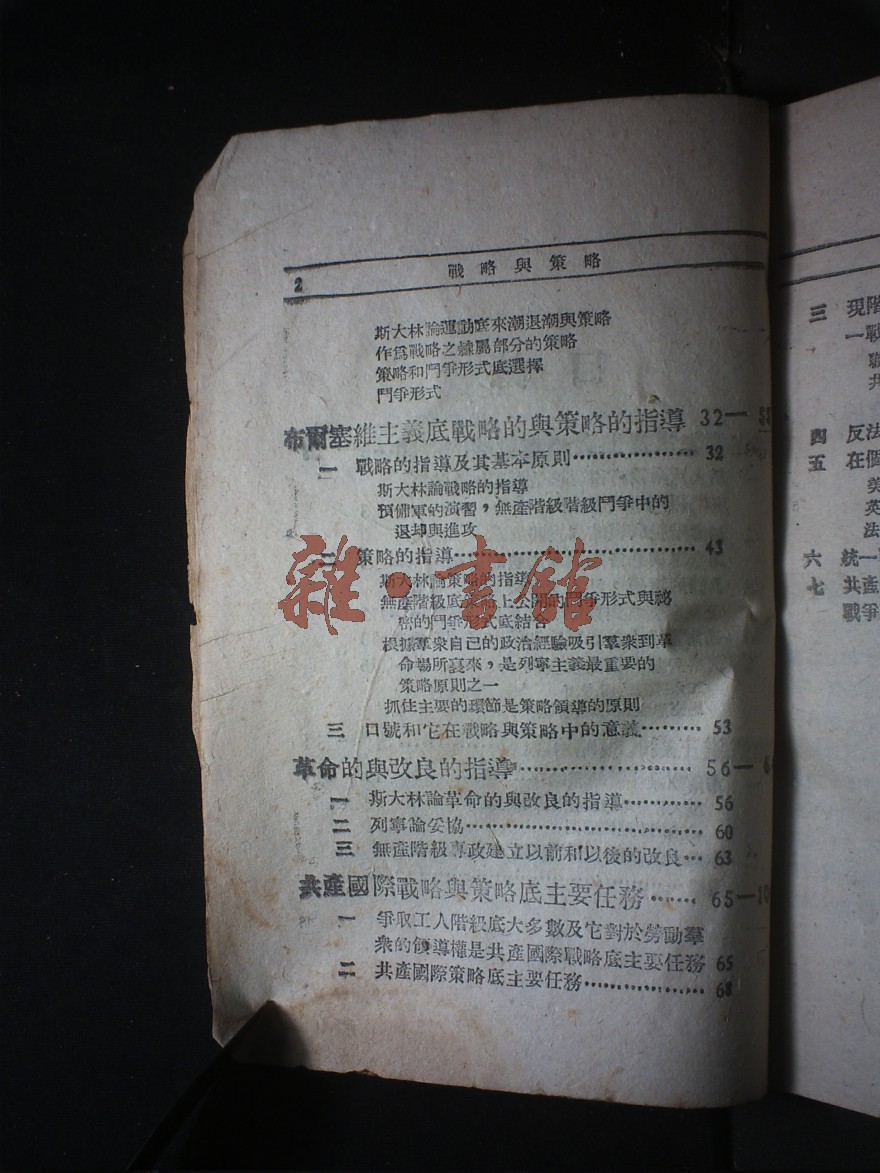 2
戰略與策略
斯大林論運動底來潮退潮與策略
作爲戰略之隸屬部分的策略
策略和鬥爭形式底選擇
鬥爭形式
布爾塞維主義底戰略的與策略的指導 32—
一 戰略的指導及其基本原則 32
斯大林論戰略的指導
預備軍的演習，無產階級階級鬥爭中的
退却與進攻
二 策略的指導 43
斯大林論策略的指導
無產階級底策略上公開的鬥爭形式與祕
密的鬥爭形式底結合
根據羣衆自己的政治經驗吸引羣衆到革
命場所裏來，是列寧主義最重要的
策略原則之一
抓住主要的環節是策略領導的原則
三 口號和它在戰略與策略中的意義 53
革命的與改良的指導 56—
一 斯大林論革命的與改良的指導 56
二 列寧論妥協 60
三 無產階級專政建立以前和以後的改良 63
共產國際戰略與策略底主要任務 65—
一 爭取工人階級底大多數及它對於勞動羣
衆的領導權是共產國際戰略底主要任務 65
二 共產國際策略底主要任務 68
雜·書館
三 現階
一戰
共
四 反法
五 在個
美
英
法
六 統一
七 共產
戰爭